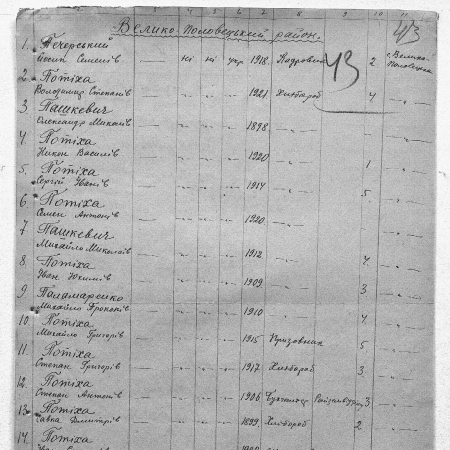 4 5 6 7 8 9 10 11
43
Велико-Половецький район.
1. Печерський
Йосип Семенів — ні ні укр 1918. Кадровий 2 с. Велико-Половецьке
43
2. Потіха
Володимир Степанів — " " " 1921 Хлібороб 4 "
3. Пашкевич
Олександр Микол. — " " " 1898 " "
4. Потіха
Никон Василів — " " " 1920 " 1 "
5. Потіха
Сергій Іванів — " " " 1914 " 5 "
6. Потіха
Семен Антонів — " " " 1920 " "
7. Пашкевич
Михайло Миколаїв — " " " 1912 " 4 "
8. Потіха
Іван Юхимів — " " " 1909 " 3 "
9. Паламаренко
Михайло Прокопів — " " " 1910 " 4 "
10. Потіха
Михайло Григорів — " " " 1915 Призовник 5 "
11. Потіха
Степан Григорів — " " " 1917 Хлібороб 3 "
12. Потіха
Степан Антонів — " " " 1906 Бухгалтер 3 "
13. Потіха
Савка Дмитрів — " " " 1899 Хлібороб 2 "
14. Потіха